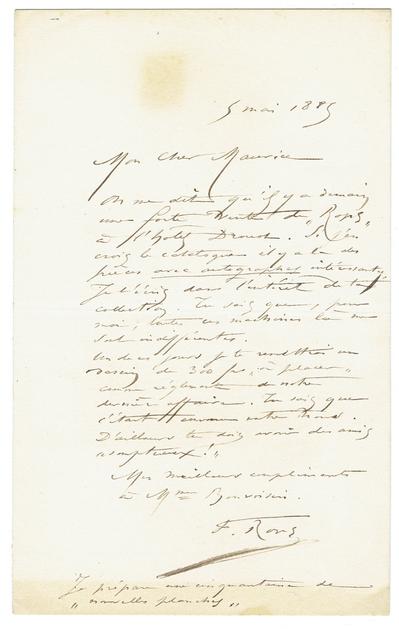 5 mai 1885
Mon cher Maurice
On me dit qu'il y a demain
une forte vente de „Rops„
à l'hotel Drouot. Si j'en
crois le catalogue il y a là des
pièces avec autographes intéressants
Je t'écris dans l'intérêt de ta
collection. Tu sais que, pour
moi, toutes ces machines là me
sont indifférentes.
Un de ces jours je te remettrai un
dessin de 300 frs „à placer„
comme règlement de notre
dernière affaire. Tu sais que
c'était convenu entre nous.
D'ailleurs tu dois avoir des amis
somptueux!„
Mes meilleurs compliments
à Mme Bonvoisin.
F. Rops
Je prépare une cinquantaine de
„nouvelles planches„